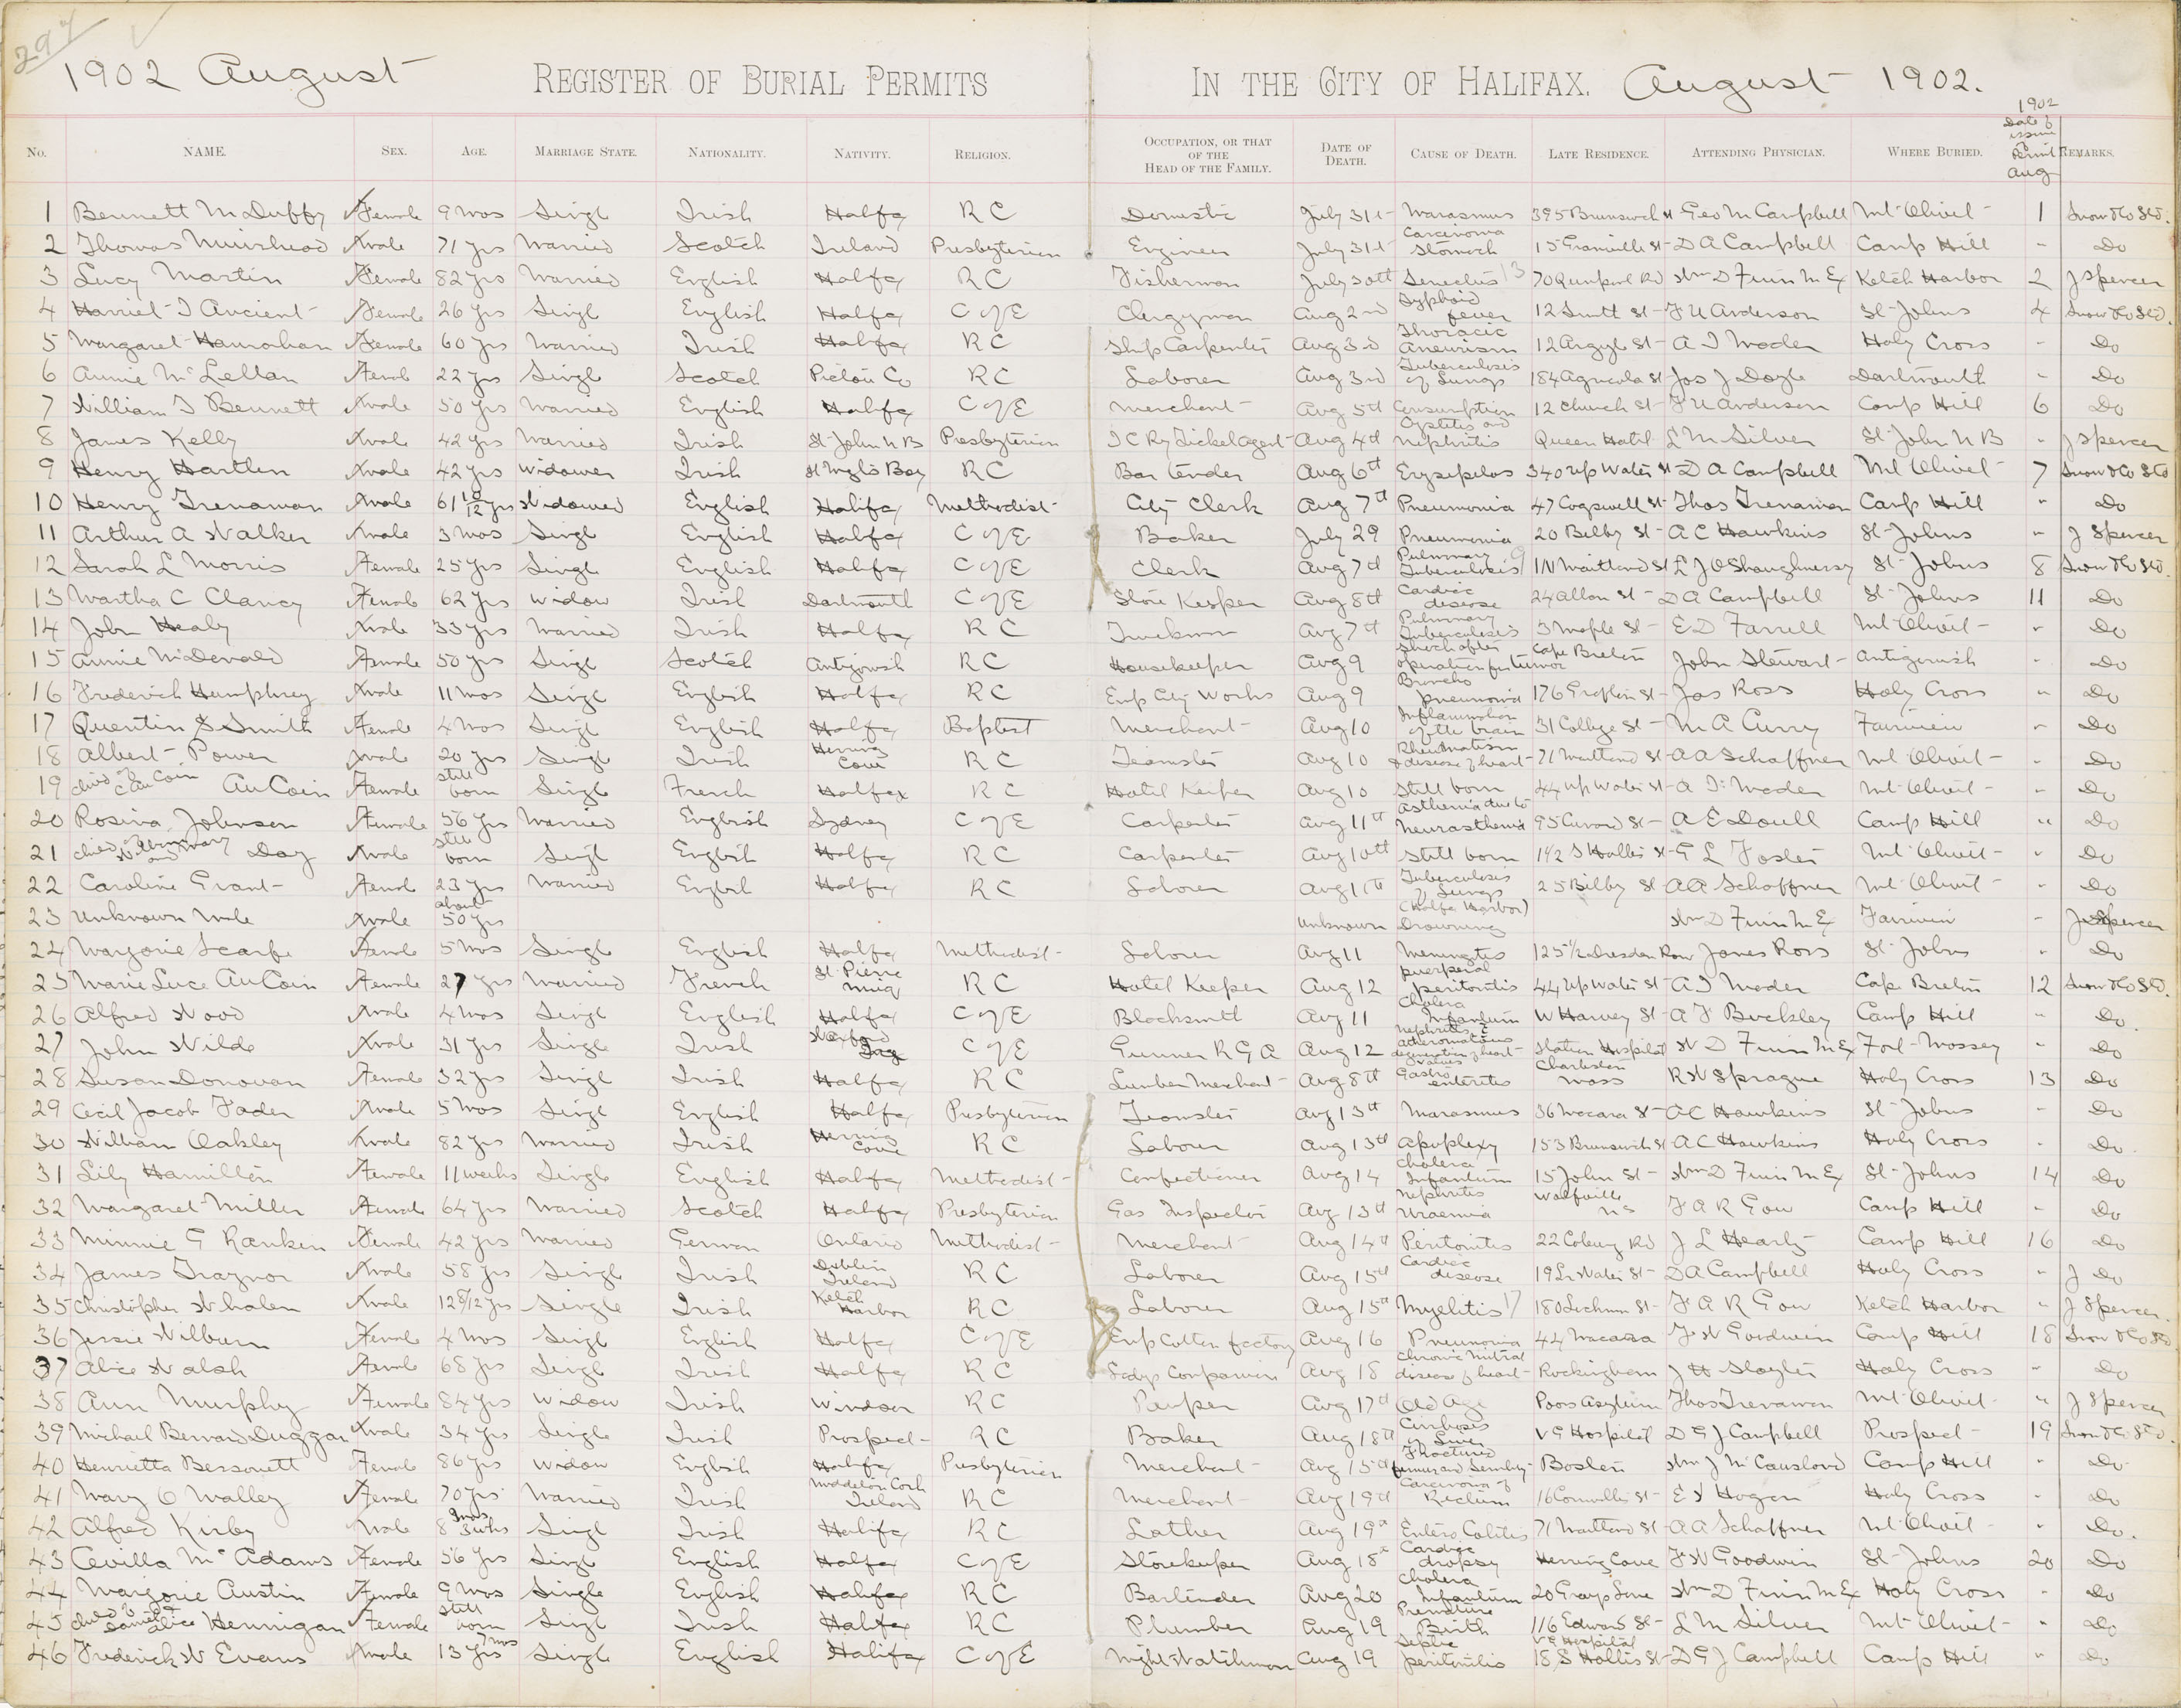 297
1902 August REGISTER OF BURIAL PERMITS IN THE CITY OF HALIFAX. August 1902.
No. NAME. SEX. AGE. MARRIAGE STATE. NATIONALITY. NATIVITY. RELIGION. OCCUPATION, OR THAT OF THE HEAD OF THE FAMILY. DATE OF DEATH. CAUSE OF DEATH. LATE RESIDENCE. ATTENDING PHYSICIAN. WHERE BURIED. 1902 Date of issue of Permit Aug REMARKS.
1 Bennett McDuffy Female 9 mos Singl Irish Halifax R C Domestic July 31st Marasmus 395 Brunswick St Geo M Campbell Mt Olivet 1 Snow & Co Ltd.
2 Thomas Muirhead Male 71 yrs Married Scotch Ireland Presbyterian Engineer July 31st Carcinoma Stomach 15 Granville St D A Campbell Camp Hill " Do
3 Lucy Martin Female 82 yrs Married English Halifax R C Fisherman July 30th Senectus 13 70 Quinpool Rd Wm D Finn M Ex Ketch Harbor 2 J Spencer
4 Harriet I Ancient Female 26 yrs Singl English Halifax C of E Clergyman Aug 2nd Typhoid fever 12 Smith St F U Anderson St Johns 4 Snow & Co Ltd.
5 Margaret Hanrahan Female 60 yrs Married Irish Halifax R C Ship Carpenter Aug 3d Thoracic Aneurism 12 Argyle St A I Mader Holy Cross " Do
6 Annie McLellan Femal 22 yrs Singl Scotch Pictou Co R C Laborer Aug 3rd Tuberculosis of Lungs 184 Agricola St Jas J Doyle Dartmouth " Do
7 William T Bennett Male 50 yrs Married English Halifax C of E Merchant Aug 5th Consumption 12 Church St F U Anderson Camp Hill 6 Do
8 James Kelly Male 42 yrs Married Irish St John N B Presbyterian I C Ry Ticket Agent Aug 4th Cystitis and Nephritis Queen Hotel L M Silver St John N B " J Spencer
9 Henry Hartlen Male 42 yrs Widower Irish R C Bar tender Aug 6th Erysipelas 340 Up Water St D A Campbell Mt Olivet 7 Snow & Co Ltd
10 Henry Trenaman Male 61 10/12 yrs Widowed English Halifax Methodist City Clerk Aug 7th Pneumonia 47 Cogswell St Thos Trenaman Camp Hill " Do
11 Arthur A Walker Male 3 mos Singl English Halifax C of E Baker July 29 Pneumonia 20 Bilby St A C Hawkins St Johns " J Spencer
12 Sarah L Morris Female 25 yrs Single English Halifax C of E Clerk Aug 7th Pulmonary Tuberculosis 9 1 N Maitland St L J OShaughnessy St Johns 8 Snow & Co Ltd.
13 Martha C Clancy Female 62 yrs Widow Irish Dartmouth C of E Store Keeper Aug 8th Cardiac disease 24 Allan St D A Campbell St Johns 11 Do
14 John Healy Male 33 yrs Married Irish Halifax R C Truckman Aug 7th Pulmonary Tuberculosis 3 Maple St E D Farrell Mt Olivet " Do
15 Annie McDonald Female 50 yrs Singl Scotch Antigonish R C Housekeeper Aug 9 Shock after operation for tumor Cape Breton John Stewart Antigonish " Do
16 Frederick Humphrey Male 11 mos Singl English Halifax R C Emp City Works Aug 9 Broncho pneumonia 176 Grafton St Jas Ross Holy Cross " Do
17 Quentin S Smith Female 4 mos Singl English Halifax Baptist Merchant Aug 10 Inflammation of the brain 31 College St M A Curry Fairview " Do
18 Albert Power Male 20 yrs Singl Irish Herring Cove R C Teamster Aug 10 Rheumatism & disease of heart 71 Maitland St A A Schaffner Mt Olivet " Do
19 child of C AuCoin AuCoin Female still born Singl French Halifax R C Hotel Keeper Aug 10 Still born 44 Up Water St A I Mader Mt Olivet " Do
20 Rosina Johnson Female 56 yrs Married English Sydney C of E Carpenter Aug 11th Asthenia due to Neurasthenia 95 Cunard St A E Doull Camp Hill " Do
21 child of and Mary Day Male still born Singl English Halifax R C Carpenter Aug 10th Still born 142 S Hollis St G L Foster Mt Olivet " Do
22 Caroline Grant Femal 23 yrs Married English Halifax R C Laborer Aug 11th Tuberculosis of Lungs 25 Bilby St A A Schaffner Mt Olivet " Do
23 Unknown Male Male about 50 yrs Unknown (Halifax Harbor) Drowning Wm D Finn M Ex Fairview " J Spencer
24 Marjorie Scarfe Femal 5 mos Singl English Halifax Methodist Laborer Aug 11 Meningitis 125 1/2 Dresden Row James Ross St Johns " Do
25 Marie Luce AuCoin Female 27 yrs Married French St Pierre Miq R C Hotel Keeper Aug 12 puerperal peritonitis 44 Up Water St A I Mader Cape Breton 12 Snow & Co Ltd.
26 Alfred Wood Male 4 mos Singl English Halifax C of E Blacksmith Aug 11 Cholera Infantum W Harvey St A F Buckley Camp Hill " Do
27 John Wilde Male 31 yrs Single Irish C of E Gunner R G A Aug 12 Nephritis & atheromatous degeneration of heart valves Station Hospital W D Finn M Ex Fort Massey " Do
28 Susan Donovan Female 32 yrs Singl Irish Halifax R C Lumber Merchant Aug 8th Gastro enteritis Charleston Mass R W Sprague Holy Cross 13 Do
29 Cecil Jacob Fader Male 5 mos Singl English Halifax Presbyterian Teamster Aug 13th Marasmus 36 Macara St A C Hawkins St Johns " Do
30 William Oakley Male 82 yrs Married Irish Herring Cove R C Laborer Aug 13th Apoplexy 153 Brunswick St A C Hawkins Holy Cross " Do
31 Lily Hamilton Female 11 weeks Single English Halifax Methodist Confectioner Aug 14 Cholera Infantum 15 John St Wm D Finn M Ex St Johns 14 Do
32 Margaret Miller Female 64 yrs Married Scotch Halifax Presbyterian Gas Inspector Aug 13th Nephritis Uraemia Wolfville N S F A R Gow Camp Hill " Do
33 Minnie G Rankin Female 42 yrs Married German Ontario Methodist Merchant Aug 14th Peritonitis 22 Coburg Rd J L Hearty Camp Hill 16 Do
34 James Traynor Male 58 yrs Singl Irish Dublin Ireland R C Laborer Aug 15th Cardiac disease 19 Lr Water St D A Campbell Holy Cross " J Do
35 Christopher Whalen Male 12 8/12 yrs Single Irish Ketch Harbor R C Laborer Aug 15th Myelitis 17 180 Lockman St F A R Gow Ketch Harbor " J Spencer.
36 Jessie Wilburn Female 4 mos Singl English Halifax C of E Emp Cotton factory Aug 16 Pneumonia 44 Macara F W Goodwin Camp Hill 18 Snow & Co Ltd
37 Alice Walsh Femal 68 yrs Singl Irish Halifax R C Ladys Companion Aug 18 Chronic Mitral disease of heart Rockingham J H Slayter Holy Cross " Do
38 Ann Murphy Female 84 yrs Widow Irish Windsor R C Pauper Aug 17th Old Age Poors Asylum Thos Trenaman Mt Olivet " J Spencer
39 Michael Bernard Duggan Male 34 yrs Single Irish Prospect R C Baker Aug 18th Cirrhosis of Liver V G Hospital D G J Campbell Prospect 19 Snow & Co Ltd.
40 Henrietta Bessonett Female 86 yrs Widow English Halifax Presbyterian Merchant Aug 15th Fractured femur and Senility Boston Wm J McCausland Camp Hill " Do
41 Mary O Malley Female 70 yrs Married Irish Middleton Cork Ireland R C Merchant Aug 19th Carcinoma of Rectum 16 Cornwallis St E V Hogan Holy Cross " Do
42 Alfred Kirby Male 8 mos 3 wks Singl Irish Halifax R C Lather Aug 19th Entero Colitis 71 Maitland St A A Schaffner Mt Olivet " Do.
43 Avilla McAdams Female 56 yrs Singl English Halifax C of E Storekeeper Aug 18th Cardiac dropsy Herring Cove F W Goodwin St Johns 20 Do
44 Marjorie Austin Female 9 mos Single English Halifax R C Bartender Aug 20 Cholera Infantum 20 Grays Lane Wm D Finn M Ex Holy Cross " Do
45 child of Alice Hennigan Female still born Singl Irish Halifax R C Plumber Aug 19 Premature Birth 116 Edward St L M Silver Mt Olivet " Do
46 Frederick W Evans Male 13 yrs 7 mos Single English Halifax C of E Night Watchman Aug 19 Septic peritonitis V G Hospital 18 S Hollis St D G J Campbell Camp Hill " Do